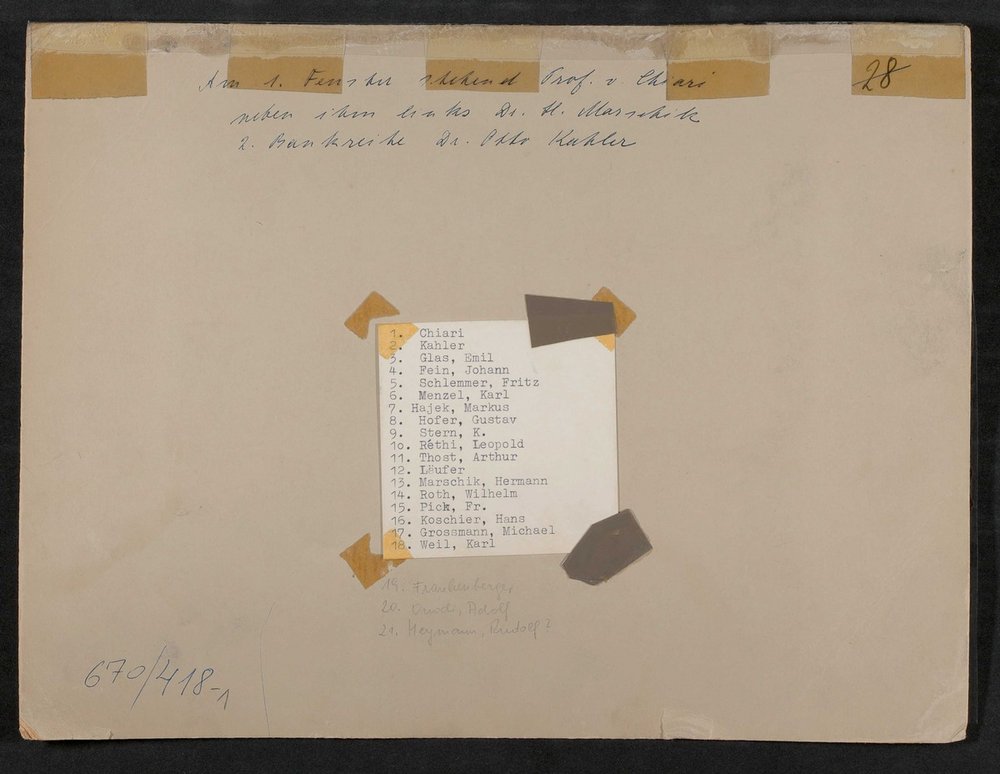 Am 1. Fenster stehend Prof. v Chiari
28
neben ihm links Dr. H. Marschik
2. Bankreihe Dr. Otto Kahler
1. Chiari
2. Kahler
3. Glas, Emil
4. Fein, Johann
5. Schlemmer, Fritz
6. Menzel, Karl
7. Hajek, Markus
8. Hofer, Gustav
9. Stern, K.
1o. Réthi, Leopold
11. Thost, Arthur
12. Läufer
13. Marschik, Hermann
14. Roth, Wilhelm
15. Pick, Fr.
16. Koschier, Hans
17. Grossmann, Michael
18. Weil, Karl
19. Frankenberger
20. Adolf
21. Heymann, Rudolf?
670/418-1